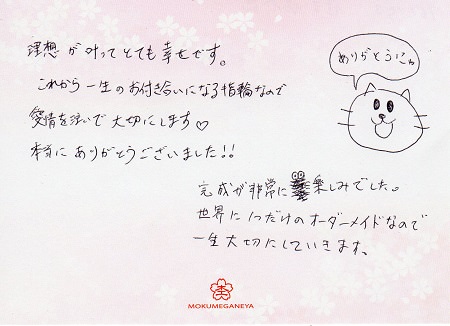 理想が叶ってとても幸せです。
これから一生のお付き合いになる指輪なので
愛情を注いで大切にします♡
本当にありがとうございました!!
ありがとうにゃ
完成が非常に楽しみでした。
世界に1つだけのオーダーメイドなので
一生大切にしていきます。
MOKUMEGANEYA